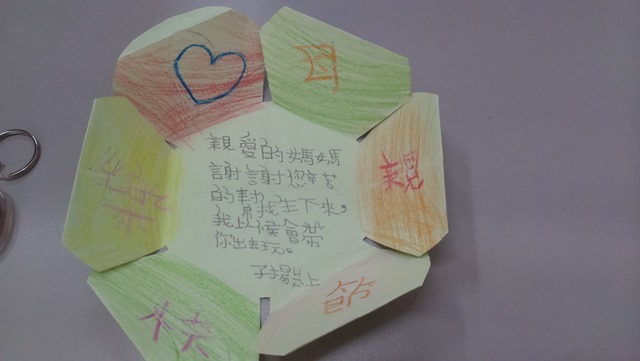 母
親
節
快
樂
親愛的媽媽
謝謝您辛苦
的 我生下來，
我以候會帶
你出去玩。
子揚 上